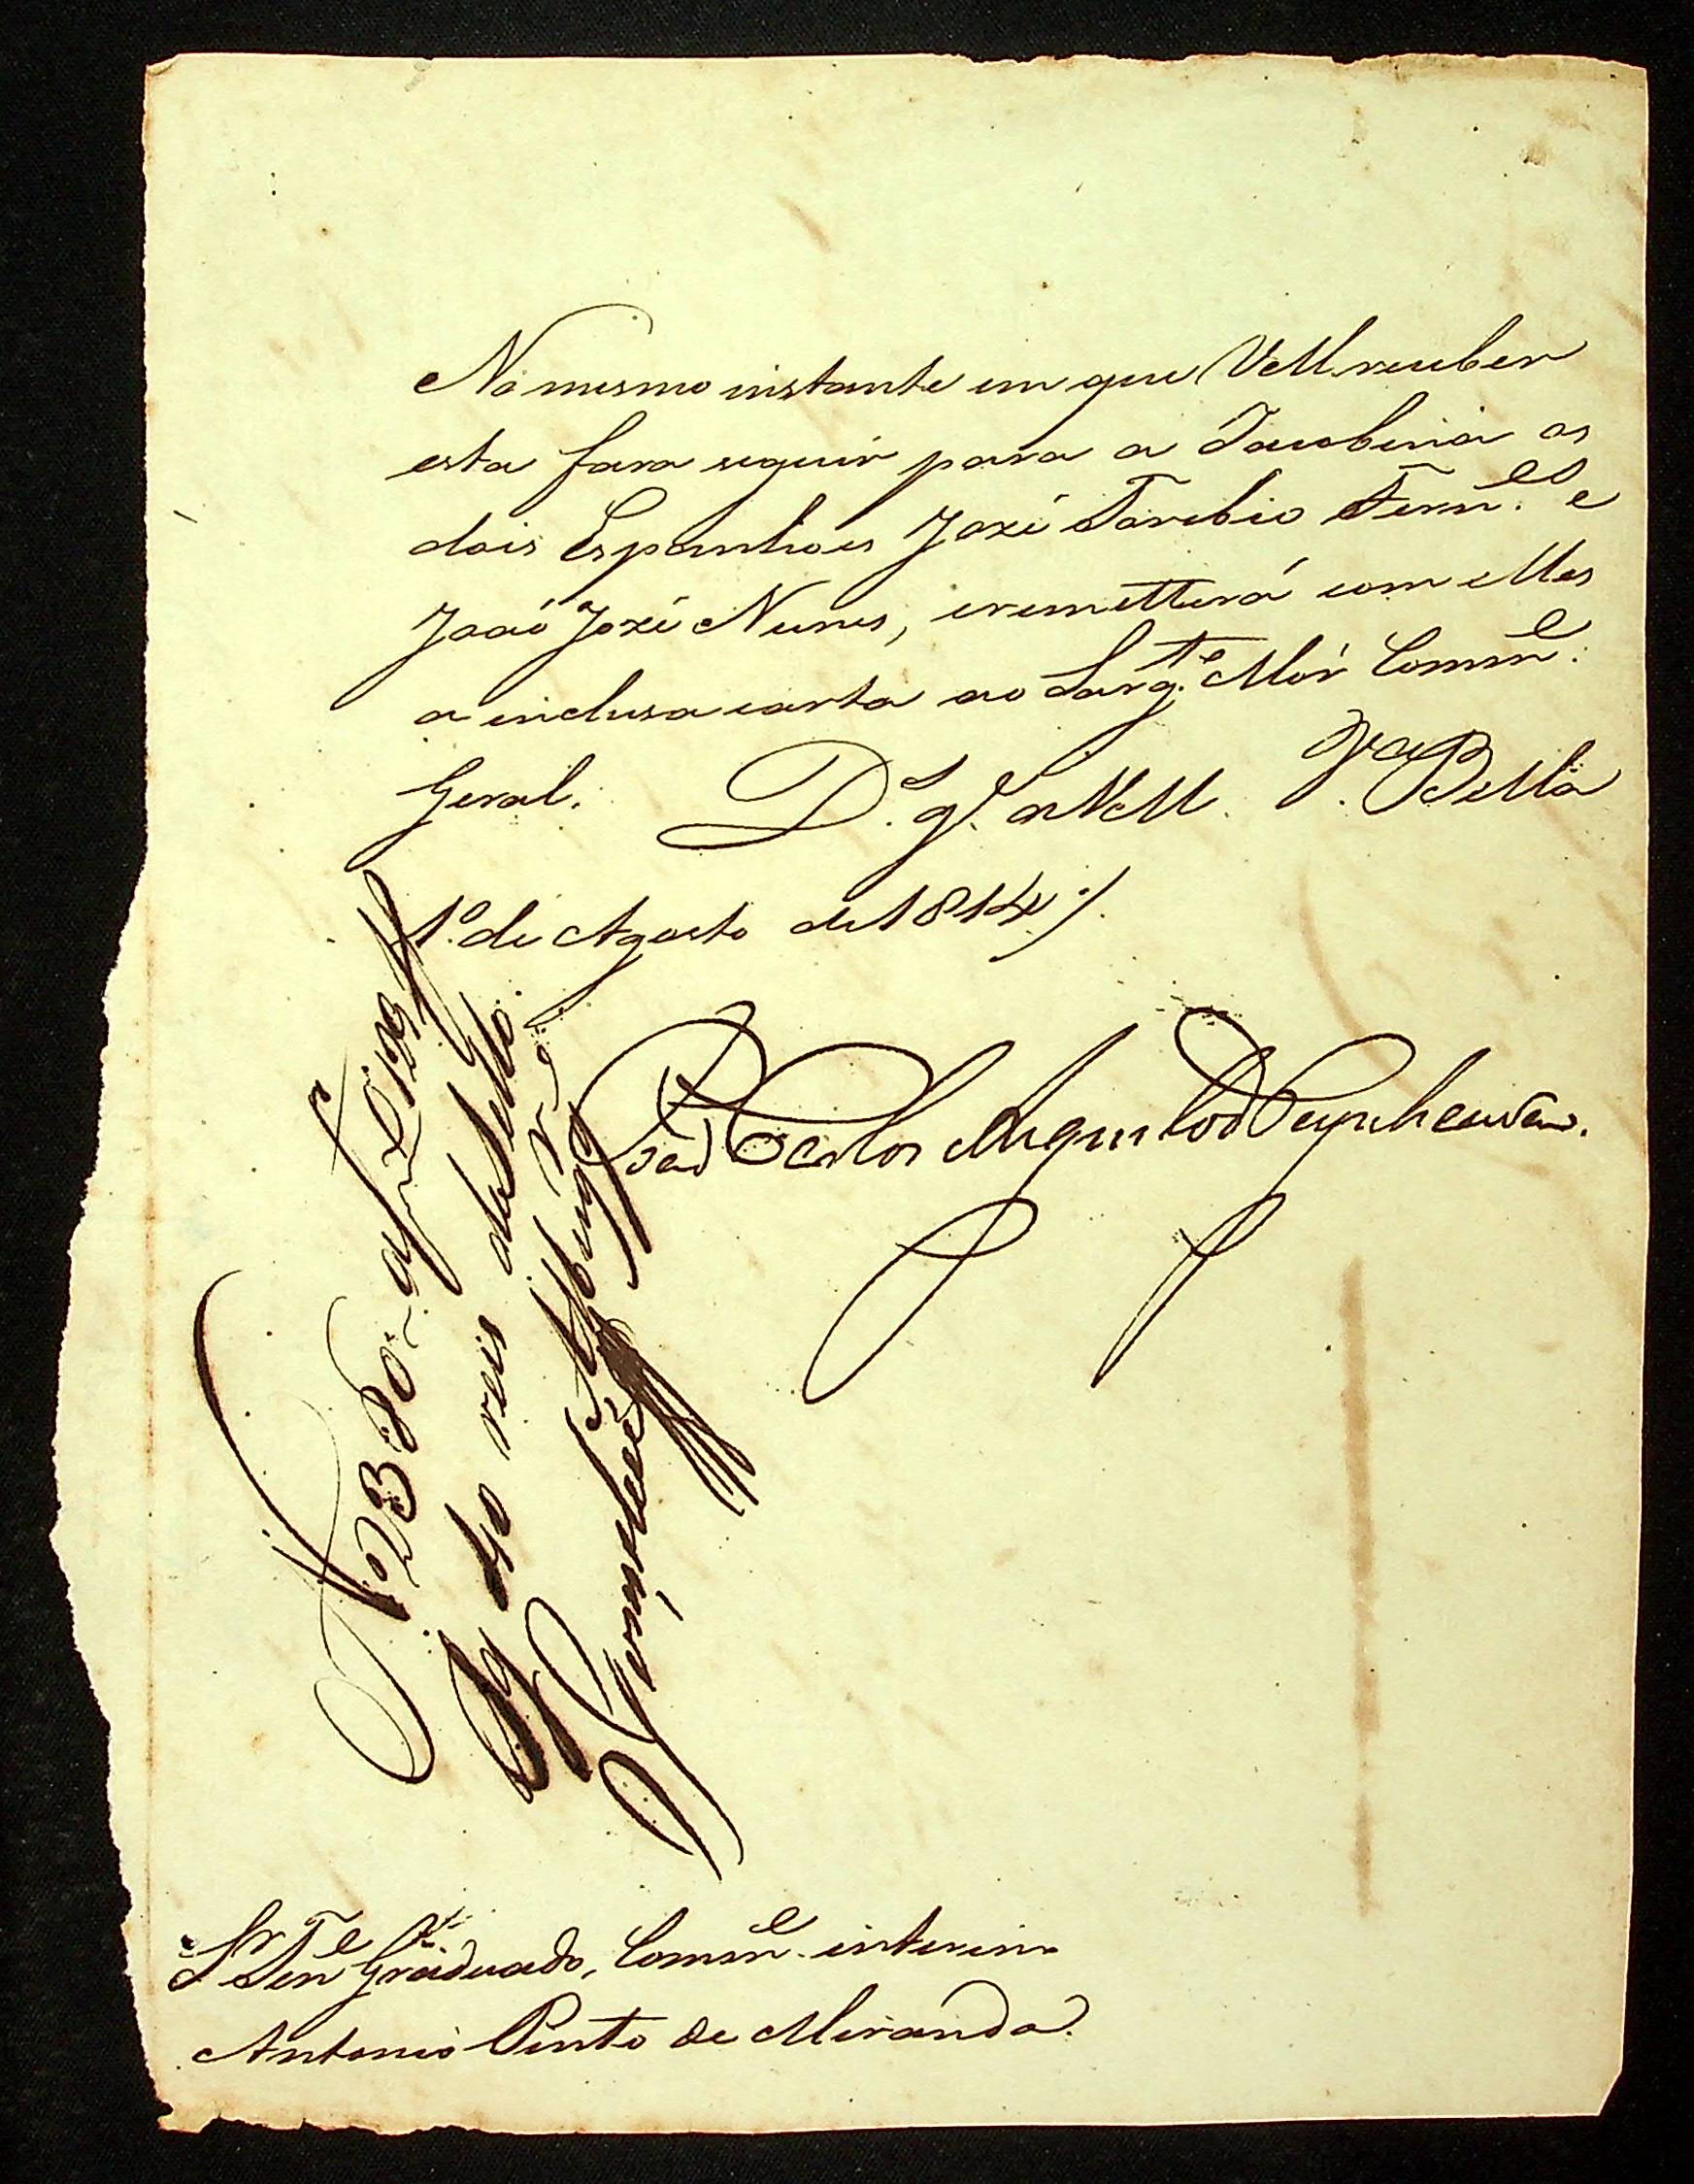 No mesmo instante em que VM. receber
esta fara seguir para a Jacobina os
dois Espanhoes Jozé Toribio Fern.es e
João Jozé Nunes, e remetterá com elles
a inclusa carta ao Sarg.to Mór Comm.e
Geral. D.s g.e a VM. V.a Bella
1.o de Agosto de 1814 /.
João Carlos Augusto d'Oeynhausen.
N 230
40 reis de sello.
Sr. Ten.e Graduado, Comm.e interino
Antonio Pinto de Miranda.